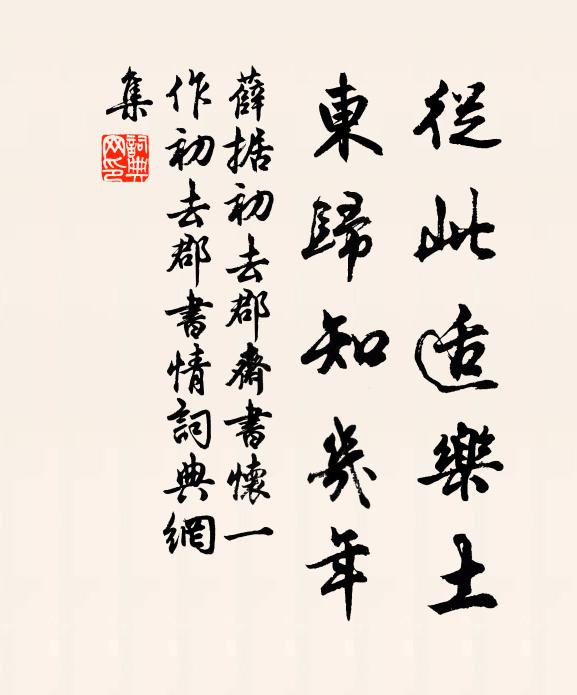 從此适樂土
東歸知幾年
薛据初去郡齋書懷一
作初去郡書情詞典網
集
詞典網印